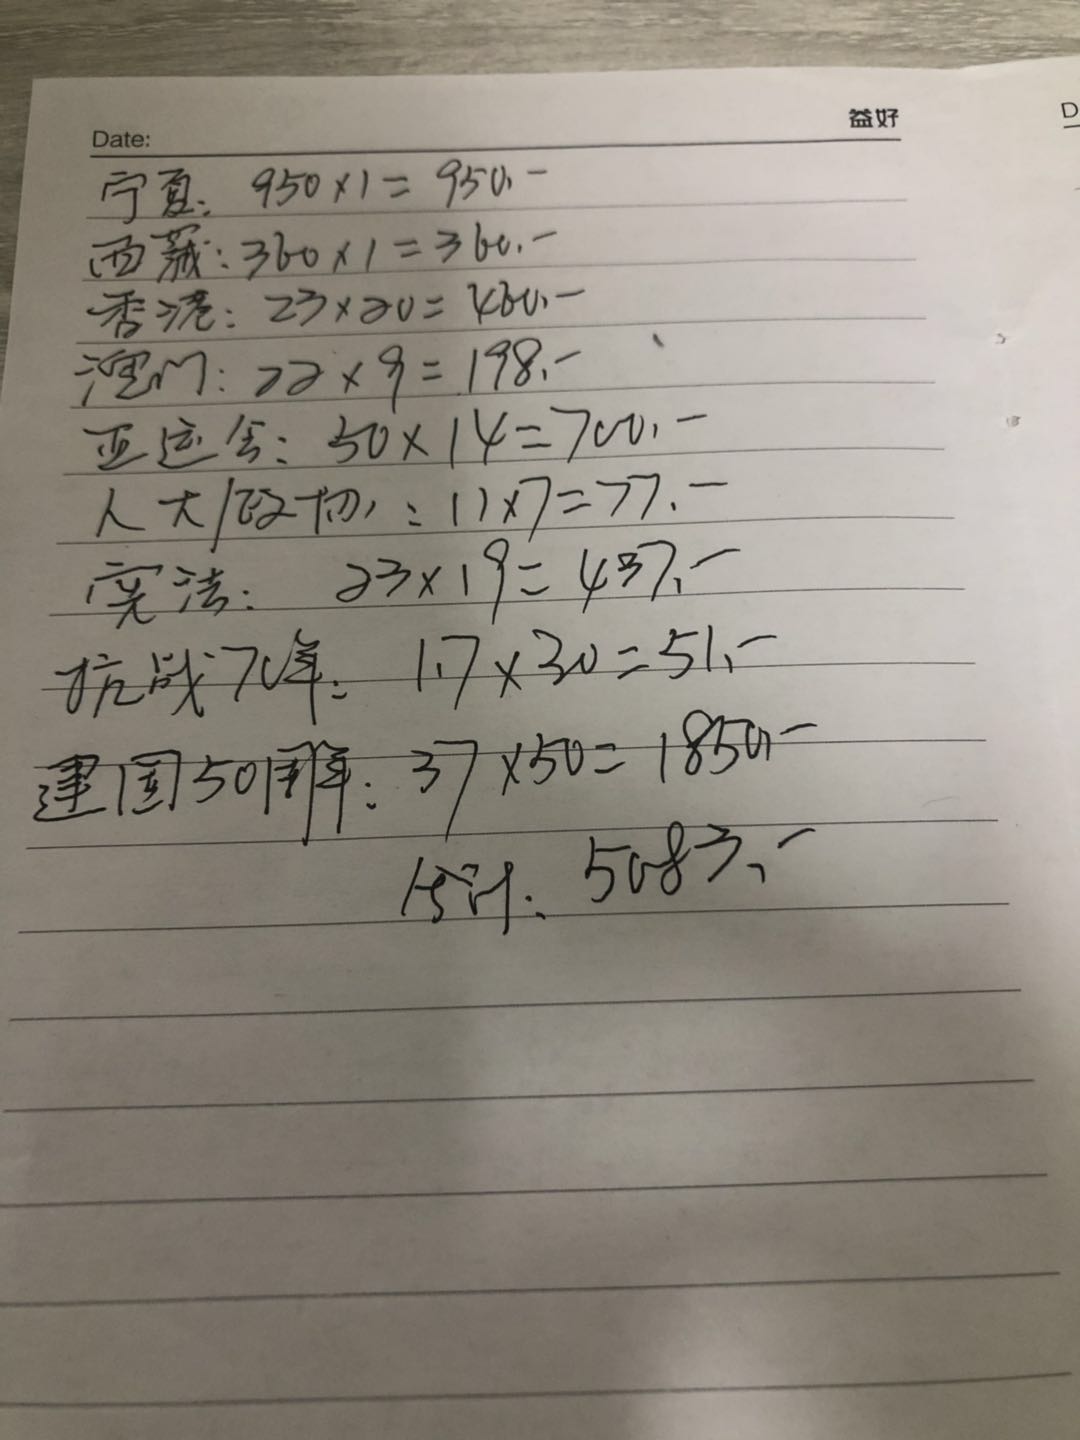 益好
Date:
D
宁夏: 950×1=950.-
西藏: 360×1=360.-
香港: 23×20=460.-
澳门: 22×9=198.-
亚运会: 50×14=700.-
人大/政协: 11×7=77.-
宪法: 23×19=437.-
抗战70年: 1.7×30=51.-
建国50周年: 37×50=1850.-
估计: 5083.-